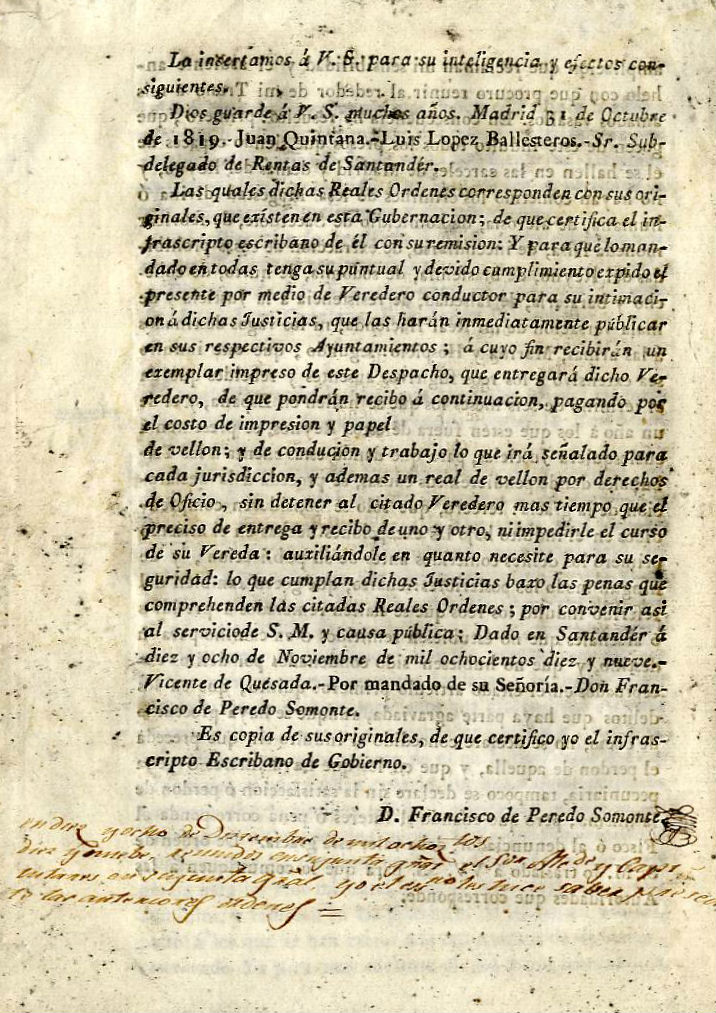 La insertamos á V. S. para su inteligencia y efectos con-
siguientes.
Dios guarde á V. S. muchos años. Madrid 31 de Octubre
de 1819.-Juan Quintana.-Luis Lopez Ballesteros.-Sr. Sub-
delegado de Rentas de Santandér.
Las quales dichas Reales Ordenes corresponden con sus ori-
ginales, que existen en esta Gubernacion; de que certifica el in-
frascripto escribano de él con su remision: Y para que lo man-
dado en todas tenga su puntual y devido cumplimiento expido el
presente por medio de Veredero conductor para su intimaci-
on á dichas Justicias, que las harán inmediatamente públicar
en sus respectivos Ayuntamientos; á cuyo fin recibirán un
exemplar impreso de este Despacho, que entregará dicho Ve-
redero, de que pondrán recibo á continuacion, pagando por
el costo de impresion y papel
de vellon; y de conducion y trabajo lo que irá señalado para
cada jurisdiccion, y ademas un real de vellon por derechos
de Oficio, sin detener al citado Veredero mas tiempo que el
preciso de entrega y recibo de uno y otro, ni impedirle el curso
de su Vereda: auxiliándole en quanto necesite para su se-
guridad: lo que cumplan dichas Justicias baxo las penas que
comprehenden las citadas Reales Ordenes; por convenir asi
al serviciode S. M. y causa pública; Dado en Santandér á
diez y ocho de Noviembre de mil ochocientos diez y nueve.-
Vicente de Quesada.-Por mandado de su Señoría.-Don Fran-
cisco de Peredo Somonte.
Es copia de sus originales, de que certifico yo el infras-
cripto Escribano de Gobierno.
D. Francisco de Peredo Somonte
en diez y ocho de Diziembre de mil ocho tos
diez y nuebe reunidos en su junta gñal el Sor y
en su junta gñal yo el les hice saber
las anteriores ordenes =